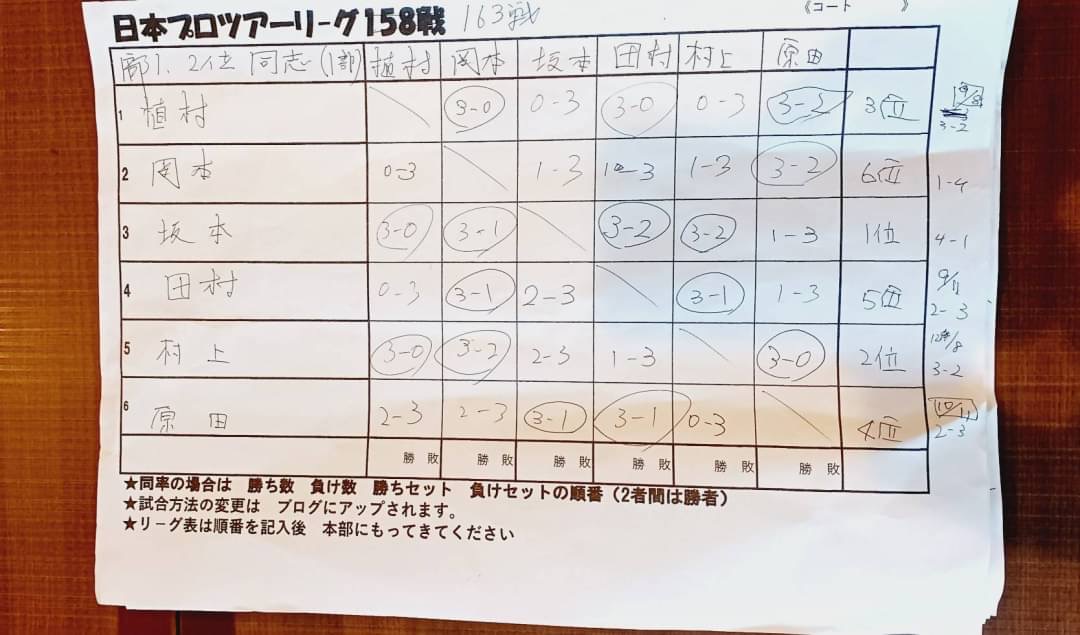 日本プロツアーリーグ158戦 163戦 《コート 》
部1、2位 同志(1部) 植村 岡本 坂本 田村 村上 原田
1 植村 3-0 0-3 3-0 0-3 3-2 3位 3-2
2 岡本 0-3 1-3 1-3 1-3 3-2 6位 1-4
3 坂本 3-0 3-1 3-2 3-2 1-3 1位 4-1
4 田村 0-3 3-1 2-3 3-1 1-3 5位 9/11 2-3
5 村上 3-0 3-2 2-3 1-3 3-0 2位 3-2
6 原田 2-3 2-3 3-1 3-1 0-3 4位 10/11 2-3
勝 敗 勝 敗 勝 敗 勝 敗 勝 敗 勝 敗
★同率の場合は 勝ち数 負け数 勝ちセット 負けセットの順番(2者間は勝者)
★試合方法の変更は ブログにアップされます。
★リーグ表は順番を記入後 本部にもってきてください